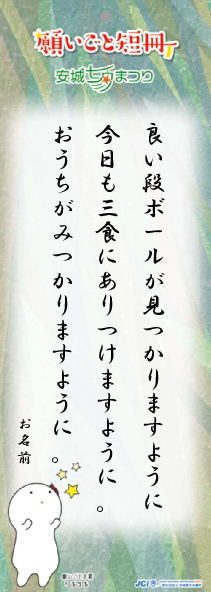 願いごと短冊
安城七夕まつり
良い段ボールが見つかりますように
今日も三食にありつけますように。
おうちがみつかりますように。
お名前
JCI